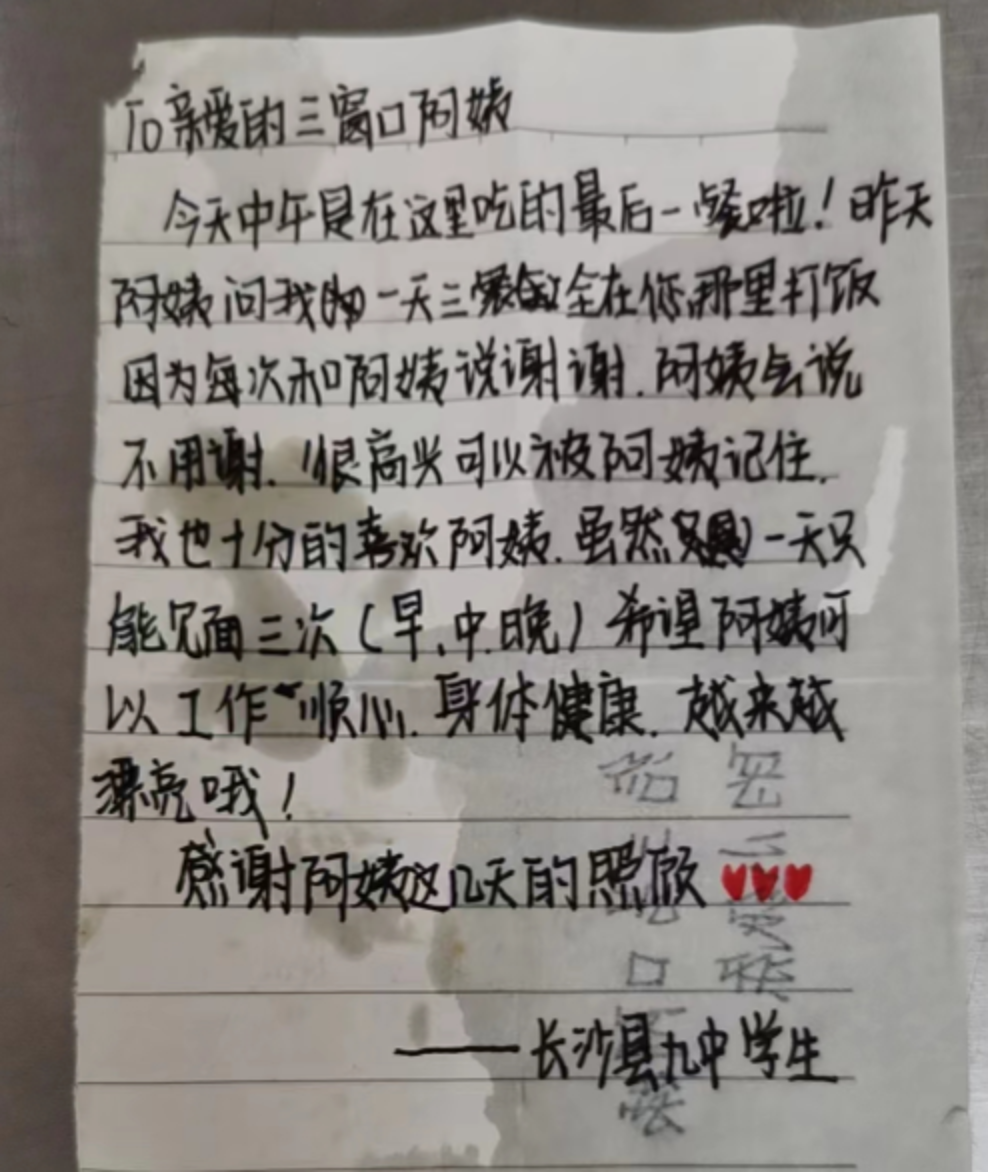 To亲爱的三窗口阿姨
今天中午是在这里吃的最后一餐啦！昨天
阿姨问我 一天三餐 全在你那里打饭
因为每次和阿姨说谢谢.阿姨会说
不用谢.很高兴可以被阿姨记住.
我也十分的喜欢阿姨.虽然 一天只
能见面三次(早.中.晚)希望阿姨可
以工作顺心.身体健康.越来越
漂亮哦！
感谢阿姨这几天的照顾
——长沙县九中学生